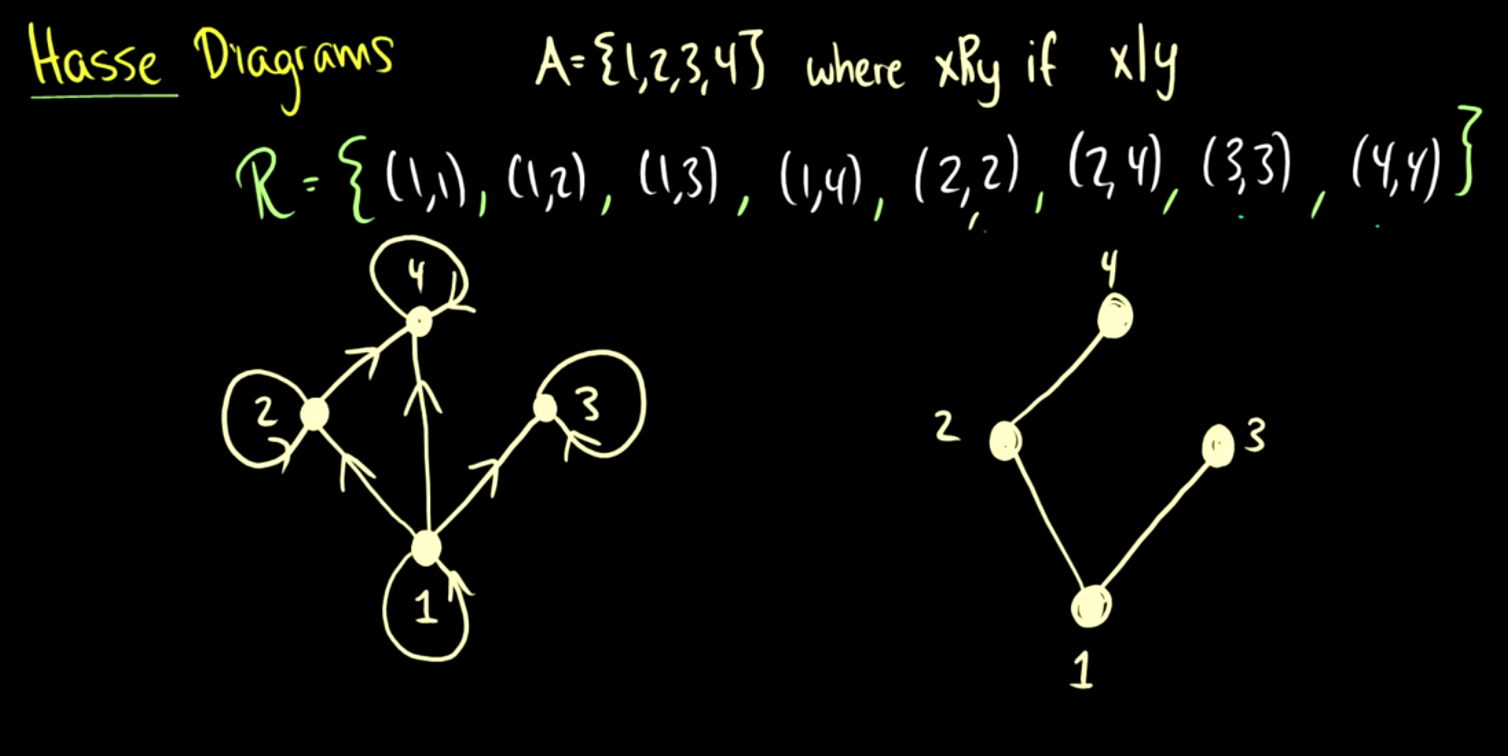 Hasse Diagrams A={1,2,3,4} where xRy if x|y
R={(1,1), (1,2), (1,3), (1,4), (2,2), (2,4), (3,3), (4,4)}
4 4
2 3 2 3
1 1